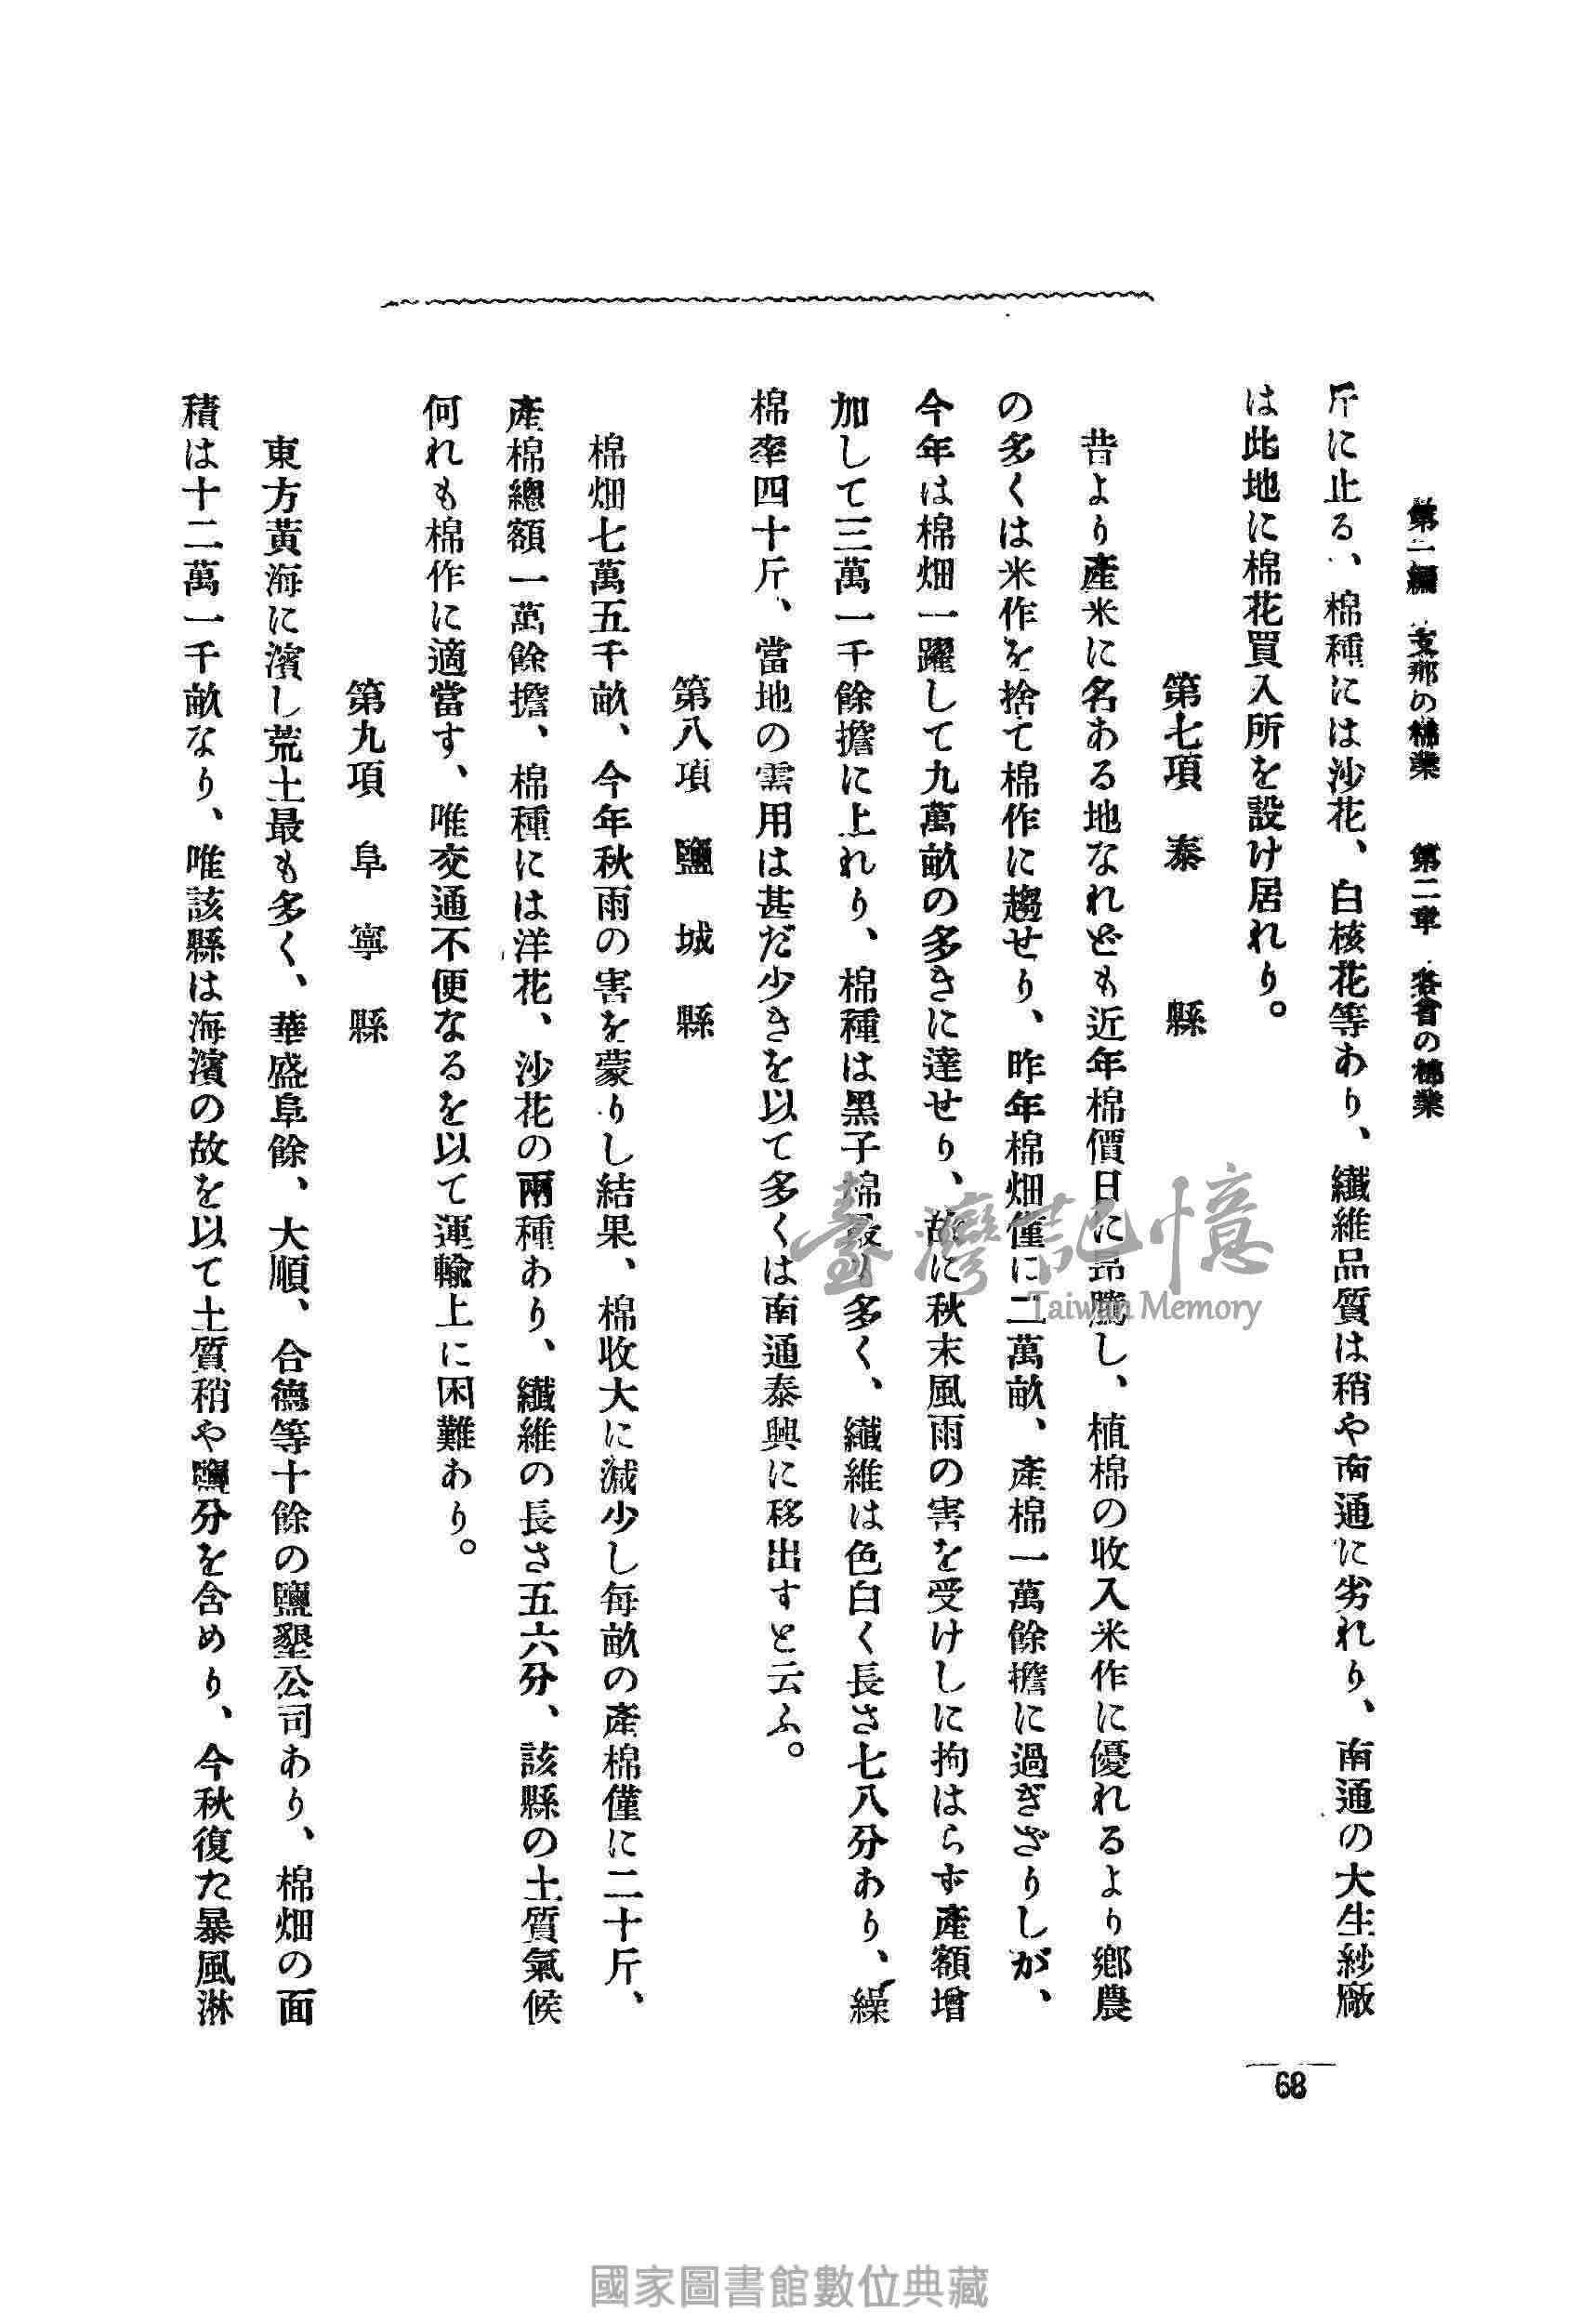 第二編 支那の棉業 第二章 各省の棉業
斤に止る、棉種には沙花、白核花等あり、纖維品質は稍や南通に劣れり、南通の大生紗廠
は此地に棉花買入所を設け居れり。
第七項 泰縣
昔より產米に名ある地なれども近年棉價日に昂騰し、植棉の收入米作に優れるより鄕農
の多くは米作を捨て棉作に趨せり、昨年棉畑僅に二萬畝、產棉一萬餘擔に過ぎざりしが、
今年は棉畑一躍して九萬畝の多きに達せり、故に秋末風雨の害を受けしに拘はらず產額增
加して三萬一千餘擔に上れり、棉種は黑子棉最も多く、纖維は色白く長さ七八分あり、繰
棉率四十斤、當地の需用は甚だ少きを以て多くは南通泰興に移出すと云ふ。
第八項 鹽城縣
棉畑七萬五千畝、今年秋雨の害を蒙りし結果、棉收大に減少し每畝の產棉僅に二十斤、
產棉總額一萬餘擔、棉種には洋花、沙花の兩種あり、纖維の長さ五六分、該縣の土質氣候
何れも棉作に適當す、唯交通不便なるを以て運輸上に困難あり。
第九項 阜寧縣
東方黃海に濱し荒土最も多く、華盛阜餘、大順、合德等十餘の鹽墾公司あり、棉畑の面
積は十二萬一千畝なり、唯該縣は海濱の故を以て土質稍や鹽分を含めり、今秋復た暴風淋
68
臺灣記憶
Taiwan Memory
國家圖書館數位典藏